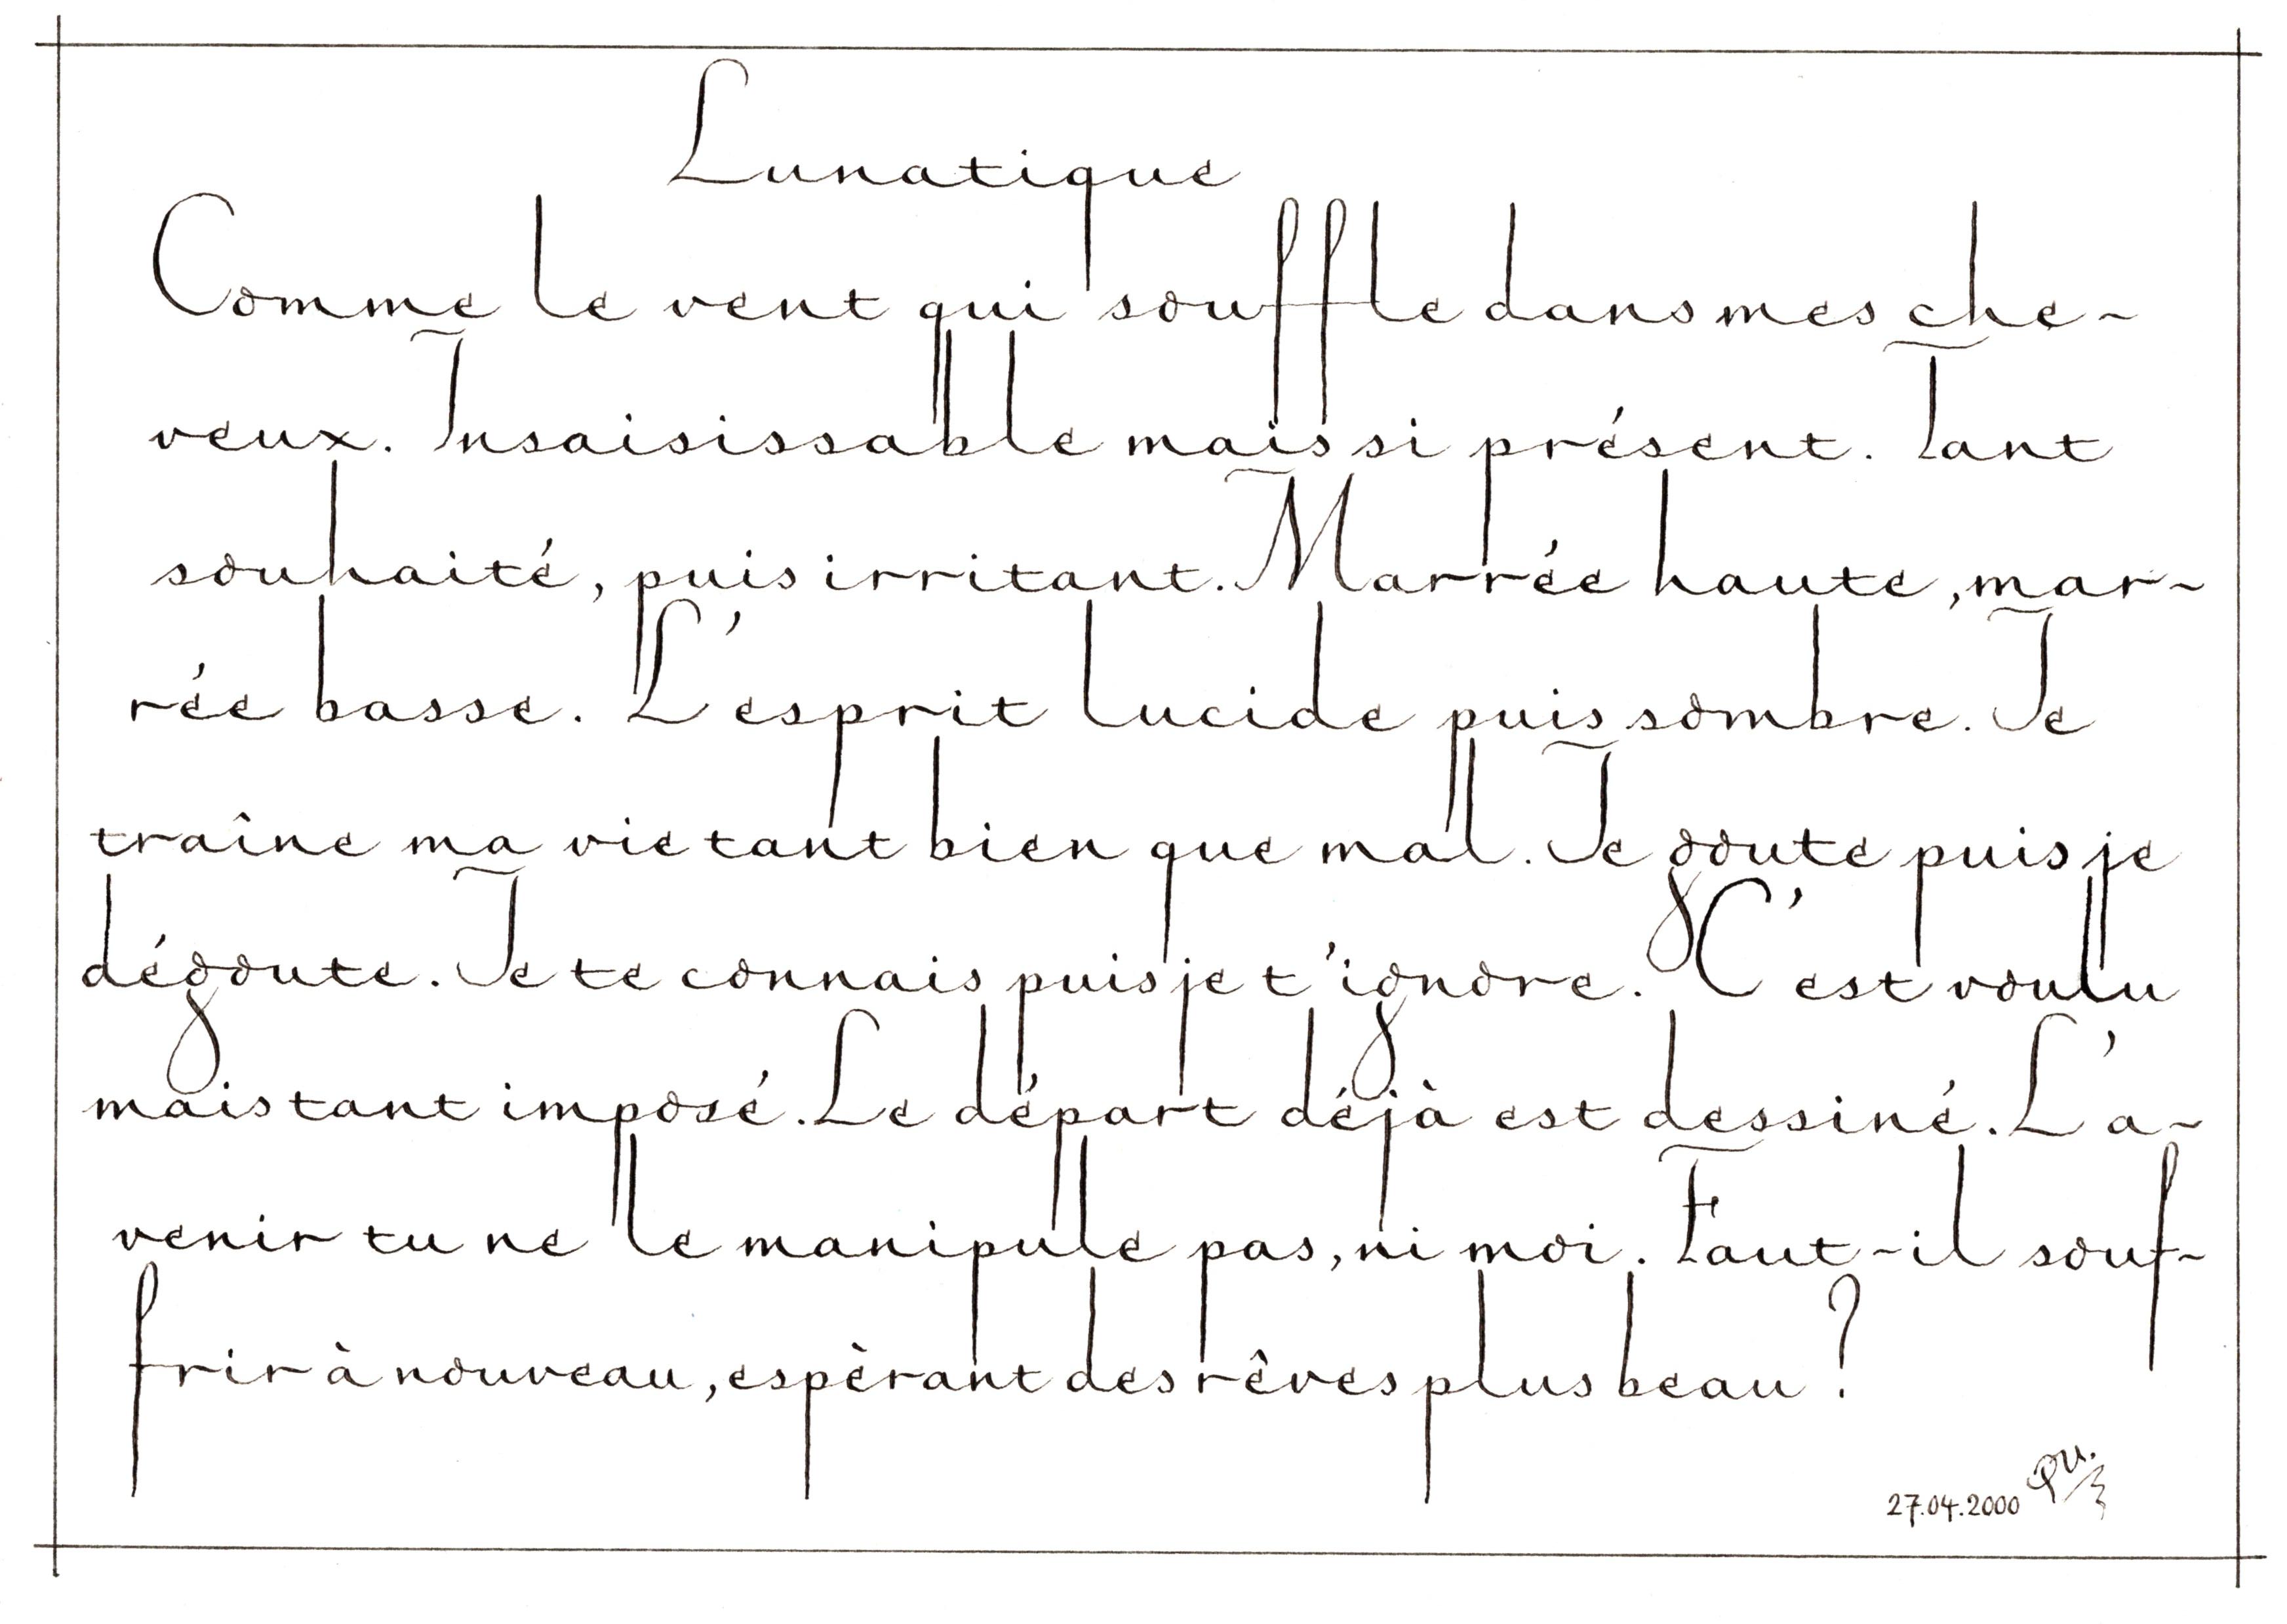 Lunatique
Comme le vent qui souffle dans mes che-
veux. Insaisissable mais si présent. Tant
souhaité, puis irritant. Marrée haute, mar-
rée basse. L'esprit lucide puis sombre. Je
traîne ma vie tant bien que mal. Je goute puis je
dégoute. Je te connais puis je t'ignore. C'est voulu
mais tant imposé. Le départ déjà est dessiné. L'a-
venir tu ne le manipule pas, ni moi. Faut-il souf-
frir à nouveau, espèrant des rêves plus beau ?
27.04.2000